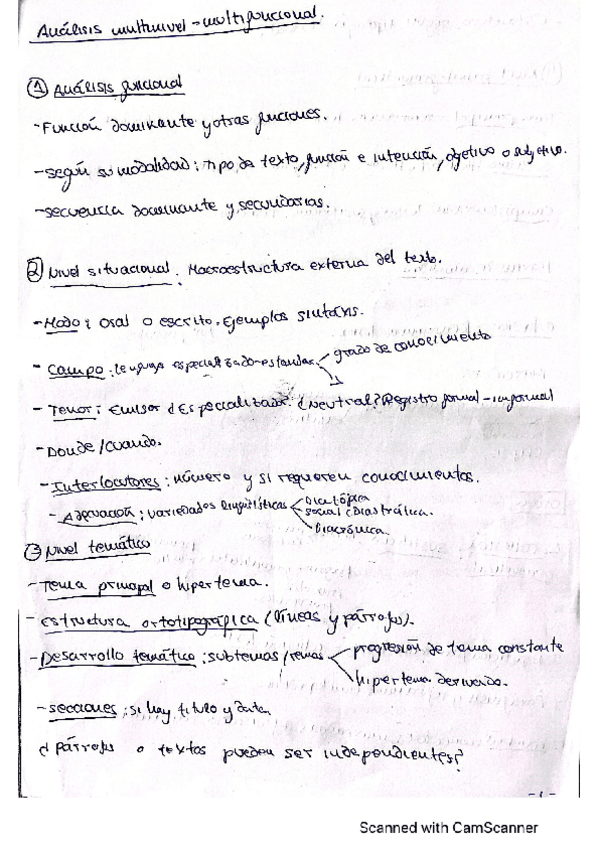 Análisis multinivel-multifuncional.
① Análisis funcional
-Función dominante y otras funciones.
-según su modalidad: tipo de texto, función e intención, objetivo o subjetivo.
-secuencia dominante y secundarias.
② Nivel situacional. Macroestructura externa del texto.
-Modo: oral o escrito. Ejemplos sintaxis.
- Campo: lenguaje especializado-estandar grado de conocimiento
- Tenor: Emisor ¿Especializador. ¿Neutral? Registro formal-informal
-Donde/cuando.
-Interlocutores: número y si requieren conocimientos.
- Adecuación: variedades lingüísticas Diatópica
social (Diastrática.
Diacrónica.
③ Nivel temático
-Tema principal o hipertema.
- estructura ortotipográfica (líneas y párrafos).
-Desarrollo temático: subtemas/remas progresión de tema constante
hipertema derivado.
-secciones: si hay título y data.
¿Párrafos o textos pueden ser independientes?
-1-
Scanned with CamScanner